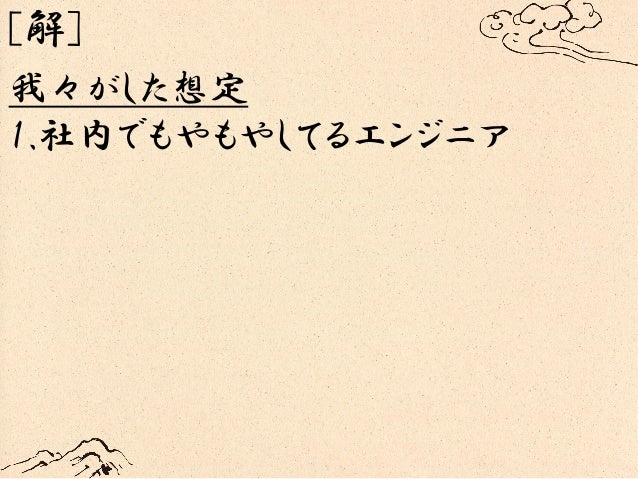 [解]
我々がした想定
1.社内でもやもやしてるエンジニア